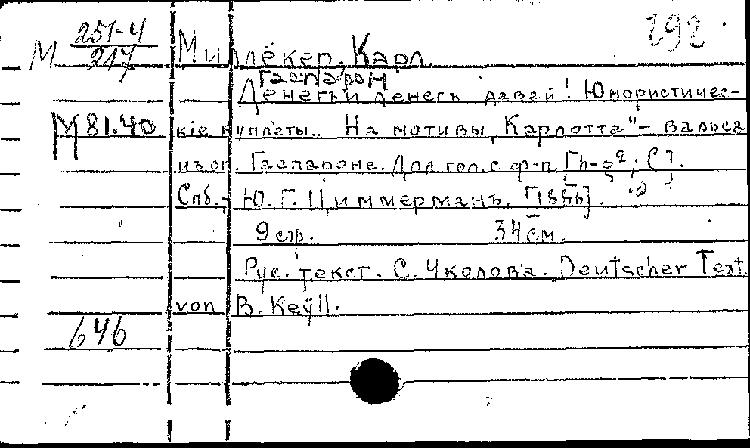 М 251-4/217 Миллёкер, Карл
Гаспарон
Денегъ и денегъ давай! Юмористичес-
М 81.40 кіе куплеты. На мотивы „Карлотта"- вальса
изъ оп. Гаспароне. Для гол. с ф-п
Спб., Ю. Г. Циммерманъ.
9 стр. 34 см.
Рус. текст. С. Уколова. Deutscher Text
von B. Keyll.
646
292